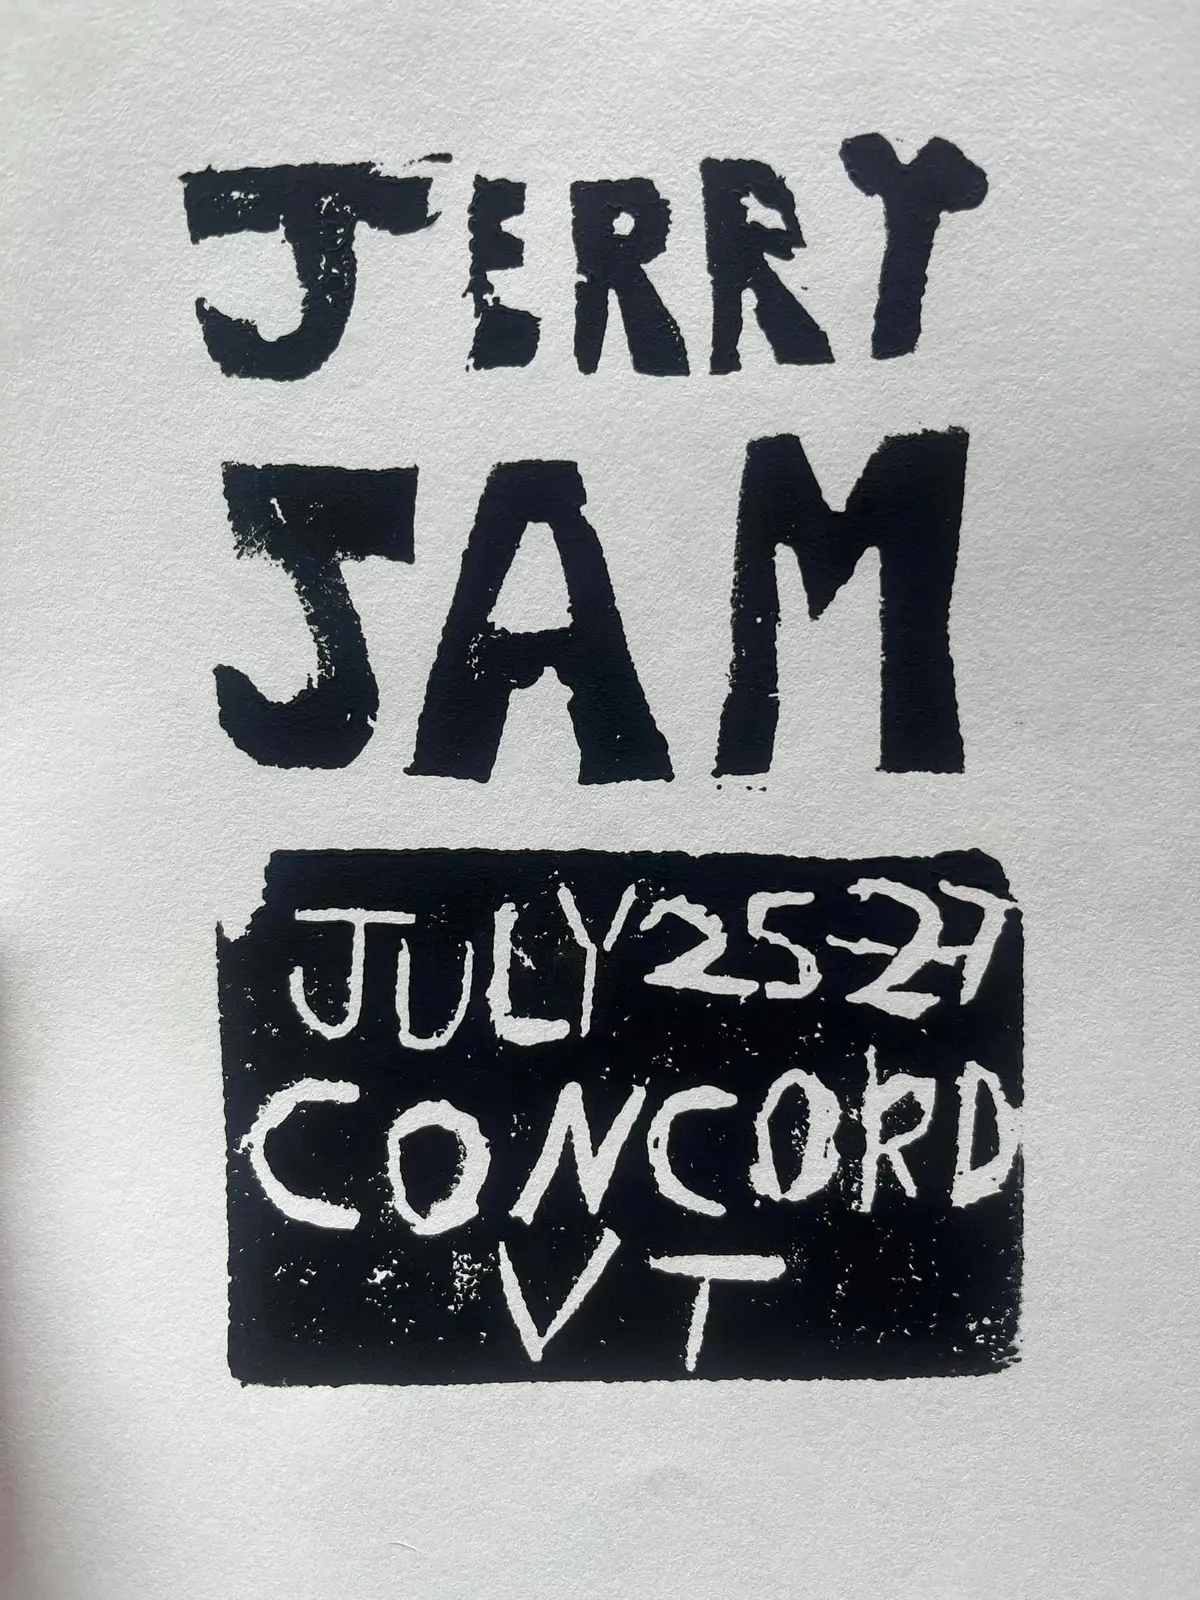 JERRY
JAM
JULY 25-27
CONCORD
VT